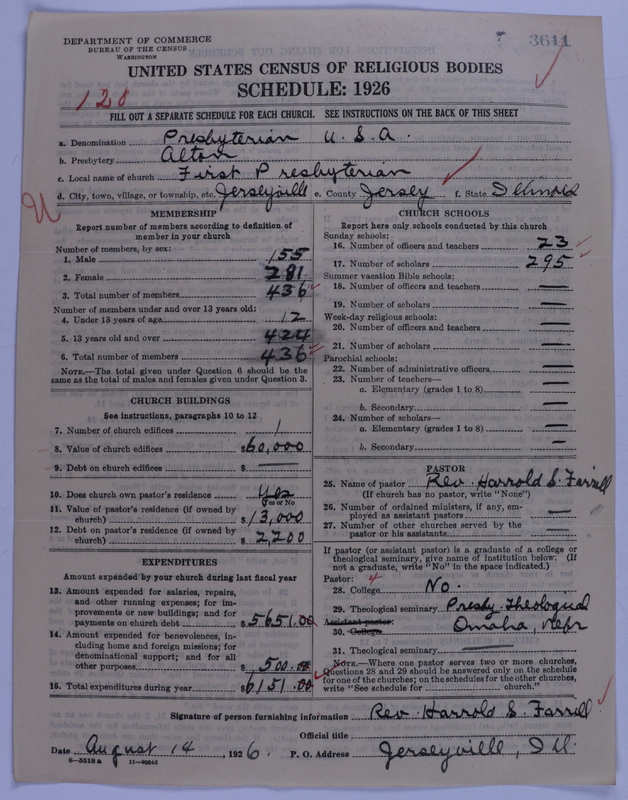 DEPARTMENT OF COMMERCE
BUREAU OF THE CENSUS
WASHINGTON
3611
UNITED STATES CENSUS OF RELIGIOUS BODIES
SCHEDULE: 1926
128
FILL OUT A SEPARATE SCHEDULE FOR EACH CHURCH. SEE INSTRUCTIONS ON THE BACK OF THIS SHEET
a. Denomination Presbyterian U.S.A.
b. Presbytery Alton
c. Local name of church First Presbyterian
d. City, town, village, or township, etc. Jerseyville e. County Jersey f. State Illinois
MEMBERSHIP
Report number of members according to definition of
member in your church
Number of members, by sex:
1. Male 155
2. Female 281
3. Total number of members 436
Number of members under and over 13 years old:
4. Under 13 years of age 12
5. 13 years old and over 424
6. Total number of members 436
NOTE.—The total given under Question 6 should be the
same as the total of males and females given under Question 3.
CHURCH BUILDINGS
See instructions, paragraphs 10 to 12
7. Number of church edifices 1
8. Value of church edifices $60,000
9. Debt on church edifices $ —
10. Does church own pastor's residence Yes
(Yes or No)
11. Value of pastor's residence (if owned by
church) $13,000
12. Debt on pastor's residence (if owned by
church) $2200
EXPENDITURES
Amount expended by your church during last fiscal year
13. Amount expended for salaries, repairs,
and other running expenses; for im-
provements or new buildings; and for
payments on church debt $5651.00
14. Amount expended for benevolences, in-
cluding home and foreign missions; for
denominational support; and for all
other purposes $500.00
15. Total expenditures during year $6151.00
CHURCH SCHOOLS
Report here only schools conducted by this church
Sunday schools:
16. Number of officers and teachers 23
17. Number of scholars 295
Summer vacation Bible schools:
18. Number of officers and teachers —
19. Number of scholars —
Week-day religious schools:
20. Number of officers and teachers —
21. Number of scholars —
Parochial schools:
22. Number of administrative officers —
23. Number of teachers—
a. Elementary (grades 1 to 8) —
b. Secondary —
24. Number of scholars—
a. Elementary (grades 1 to 8) —
b. Secondary —
PASTOR
25. Name of pastor Rev. Harrold S. Farrell
(If church has no pastor, write "None")
26. Number of ordained ministers, if any, em-
ployed as assistant pastors —
27. Number of other churches served by the
pastor or his assistants —
If pastor (or assistant pastor) is a graduate of a college or
theological seminary, give name of institution below. (If
not a graduate, write "No" in the space indicated.)
Pastor: 4
28. College No.
29. Theological seminary Presby. Theological
Assistant pastor:
Omaha, Nebr
30. College
31. Theological seminary —
NOTE.—Where one pastor serves two or more churches,
Questions 28 and 29 should be answered only on the schedule
for one of the churches; on the schedules for the other churches,
write "See schedule for church."
Signature of person furnishing information Rev. Harrold S. Farrell
Official title
Date August 14, 1926. P. O. Address Jerseyville, Ill.
8—5518 a